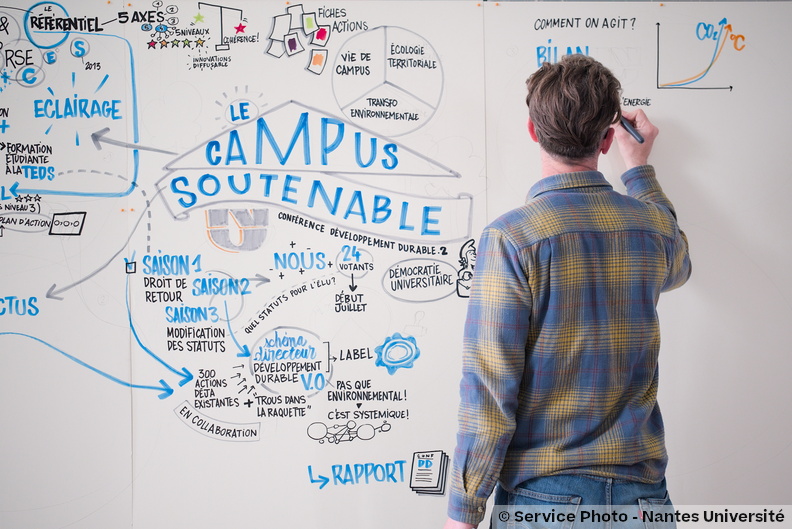 LE
RÉFÉRENTIEL
5 AXES
5 NIVEAUX
COHÉRENCE!
INNOVATIONS
DIFFUSABLE
FICHES
ACTIONS
&
RSE
C E S
2013
ECLAIRAGE
FORMATION
ÉTUDIANTE
À LA TEDS
NIVEAU 3)
PLAN D'ACTION
CTUS
VIE DE
CAMPUS
ÉCOLOGIE
TERRITORIALE
TRANSFO
ENVIRONNEMENTALE
LE
CAMPUS
SOUTENABLE
CONFÉRENCE DÉVELOPPEMENT DURABLE.2
SAISON 1
DROIT DE
RETOUR
SAISON 2
SAISON 3
MODIFICATION
DES STATUTS
NOUS
24
VOTANTS
DÉBUT
JUILLET
QUEL STATUTS POUR L'ÉLU?
DÉMOCRATIE
UNIVERSITAIRE
schéma
directeur
DÉVELOPPEMENT
DURABLE V.0
LABEL
300
ACTIONS
DÉJÀ
EXISTANTES
+ "TROUS DANS
LA RAQUETTE"
EN COLLABORATION
PAS QUE
ENVIRONNEMENTAL!
C'EST SYSTÉMIQUE!
RAPPORT
DD
COMMENT ON AGIT?
BILAN
ÉNERGIE
CO2
°C
© Service Photo - Nantes Université